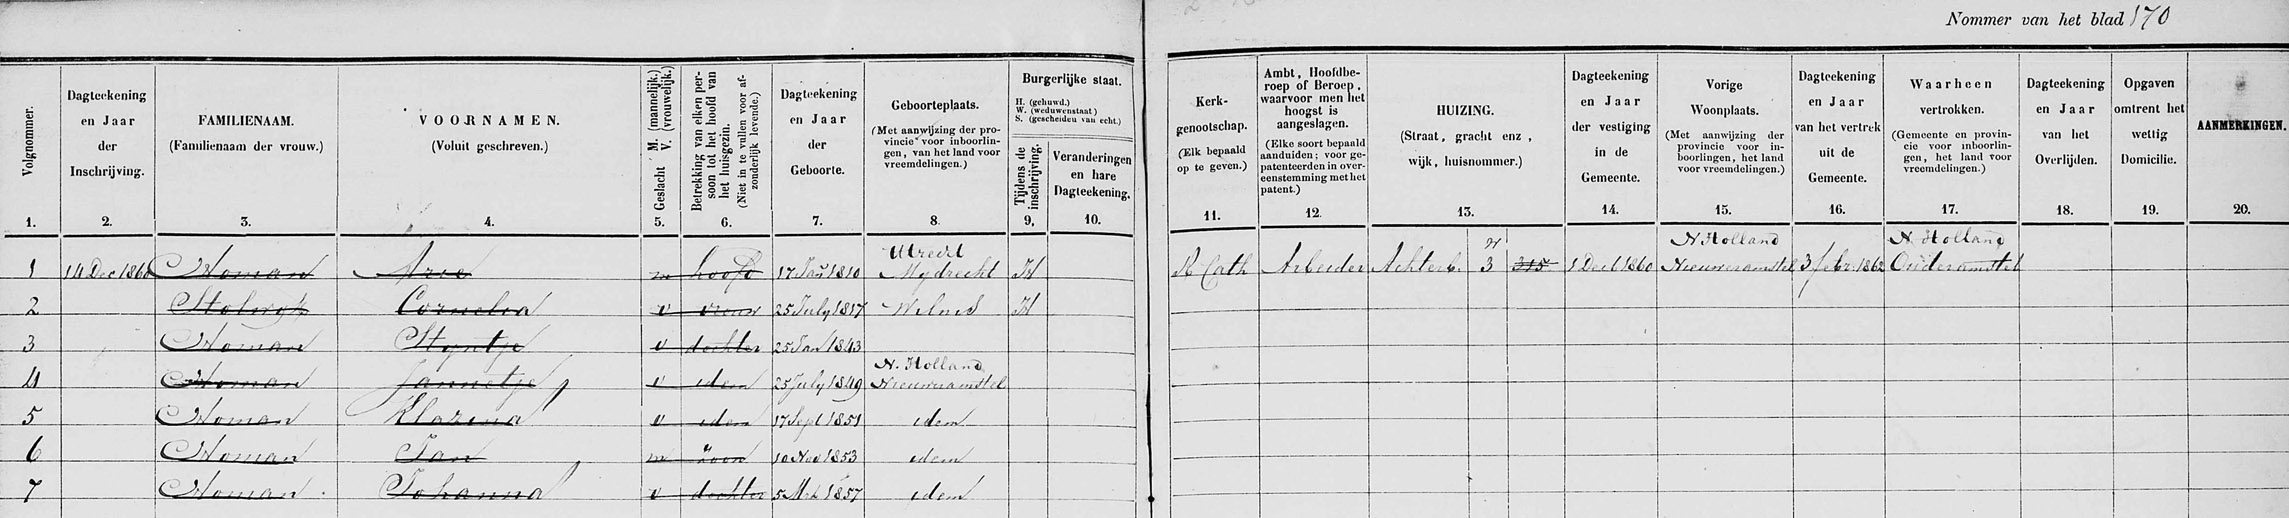 Nommer van het blad 170
Volgnommer.
1.
Dagteekening
en Jaar
der
Inschrijving.
2.
FAMILIENAAM.
(Familienaam der vrouw.)
3.
VOORNAMEN.
(Voluit geschreven.)
4.
Geslacht M. (mannelijk.)
V. (vrouwelijk.)
5.
Betrekking van elken per-
soon tot het hoofd van
het huisgezin.
(Niet in te vullen voor af-
zonderlijk levende.)
6.
Dagteekening
en Jaar
der
Geboorte.
7.
Geboorteplaats.
(Met aanwijzing der pro-
vincie voor inboorlin-
gen, van het land voor
vreemdelingen.)
8.
Burgerlijke staat.
H. (gehuwd.)
W. (weduwenstaat)
S. (gescheiden van echt.)
Tijdens de
inschrijving.
9,
Veranderingen
en hare
Dagteekening.
10.
Kerk-
genootschap.
(Elk bepaald
op te geven.)
11.
Ambt, Hoofdbe-
roep of Beroep,
waarvoor men het
hoogst is
aangeslagen.
(Elke soort bepaald
aanduiden; voor ge-
patenteerden in over-
eenstemming met het
patent.)
12.
HUIZING.
(Straat, gracht enz,
wijk, huisnommer.)
13.
Dagteekening
en Jaar
der vestiging
in de
Gemeente.
14.
Vorige
Woonplaats.
(Met aanwijzing der
provincie voor in-
boorlingen, het land
voor vreemdelingen.)
15.
Dagteekening
en Jaar
van het vertrek
uit de
Gemeente.
16.
Waarheen
vertrokken.
(Gemeente en provin-
cie voor inboorlin-
gen, het land voor
vreemdelingen.)
17.
Dagteekening
en Jaar
van het
Overlijden.
18.
Opgaven
omtrent het
wettig
Domicilie.
19.
AANMERKINGEN.
20.
Utrecht N Holland N. Holland
1 14 Dec 1860 Homan Arie m hoofd 17 Jan 1810 Mydrecht H R Cath Arbeider Achterb. 3 315 1 Dec 1860 Nieuweramstel 3 febr. 1862 Ouderamstel
2 Stolwyk Cornelia v vrouw 25 July 1817 Wilnis H
3 Homan Styntje v dochter 25 Jan 1843
N. Holland
4 Homan Jannetje v idem 25 July 1849 Nieuweramstel
5 Homan Klazina v idem 17 Sept 1851 idem
6 Homan Jan m Zoon 10 Nov 1853 idem
7 Homan Johanna v dochter 5 Mrt 1857 idem